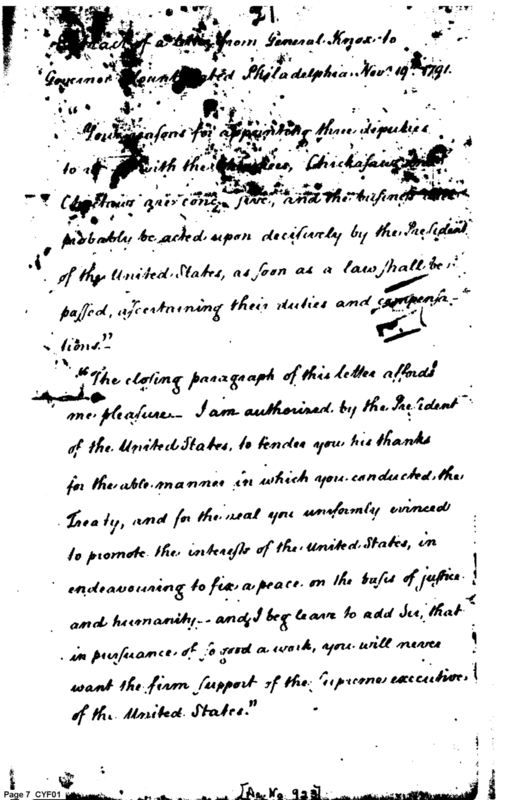 Extract of a letter from General Knox to
Governor Blount dated Philadelphia Nov.r 19th 1791.
"Your reasons for appointing three deputies
to with the Cherokees, Chickasaws and
Choctaws are and the business will
probably be acted upon decisively by the President
of the United States, as soon as a law shall be
passed, ascertaining their duties and compensa-
tions."
"The closing paragraph of this letter affords
me pleasure — I am authorized by the President
of the United States, to tender you his thanks
for the able manner in which you conducted the
Treaty, and for the zeal you uniformly evinced
to promote the interests of the United States, in
endeavouring to fix a peace on the basis of justice
and humanity — and I beg leave to add Sir, that
in pursuance of so good a work, you will never
want the firm support of the Supreme executive
of the United States."
Page 7 CYF01